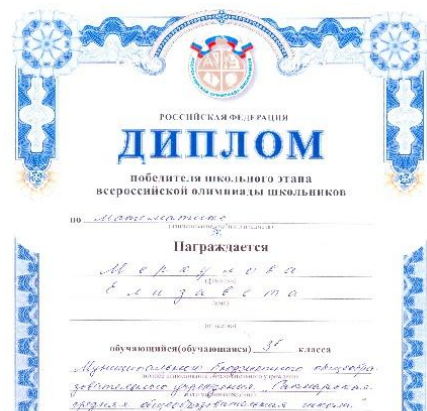 РОССИЙСКАЯ ФЕДЕРАЦИЯ
ДИПЛОМ
победителя школьного этапа
всероссийской олимпиады школьников
по математике
Награждается
Меркулова
Елизавета
обучающийся(обучающаяся) 3б класса
Муниципального бюджетного общеобра-
зовательного учреждения
средняя общеобразовательная школа."